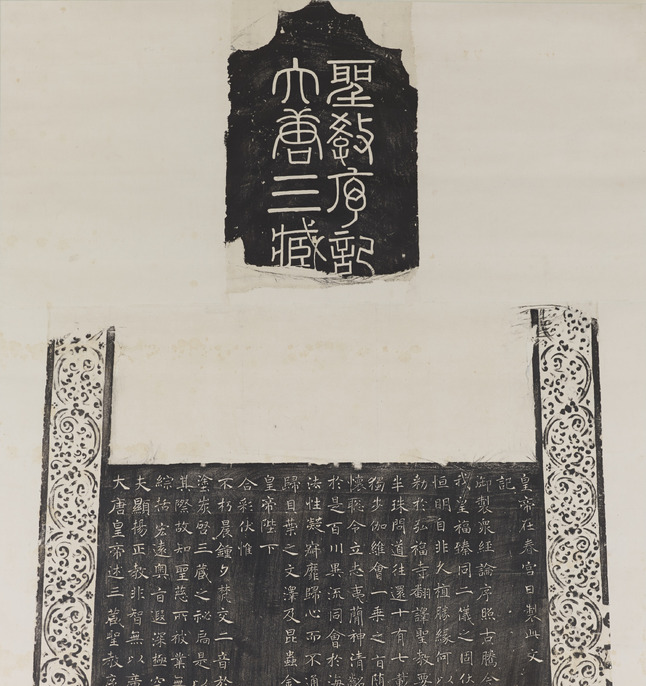 大唐三藏
聖教序記
大唐皇帝述三藏聖教序
夫顯揚正教非智無以廣
綜括宏遠奧旨遐深極空
其際故知聖慈所被業無
塗炭啓三藏之祕扃是以
不朽晨鍾夕梵交二音於
合彩伏惟
皇帝陛下
歸貝葉之文澤及昆蟲金
法性凝寂靡歸心而不通
於是百川異流同會於海
懷聰令立志夷簡神清齠
獨步伽維會一乘之旨隨
半珠問道往還十有七載
勑於弘福寺翻譯聖教要
恒明自非久植勝緣何以
我皇福臻同二儀之固伏
御製衆經論序照古騰今
記
皇帝在春宮日製此文